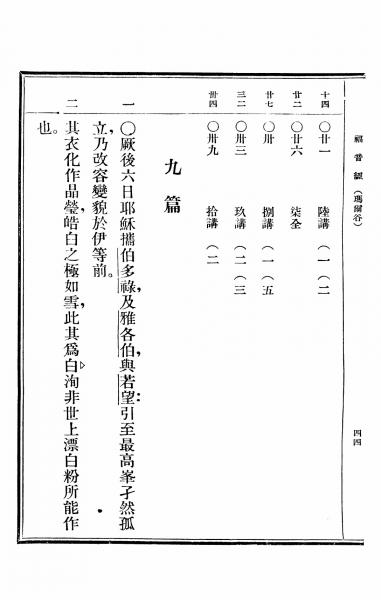 福音經（瑪爾谷） 四四
十四 〇廿一 陸講（一（二
廿二 〇廿六 柒全
廿七 〇卅 捌講（一（五
三二 〇卅三 玖講（二（三
卅四 〇卅九 拾講（二
九篇
一 〇厥後六日耶穌攜伯多祿，及雅各伯，與若望：引至最高峯孑然孤
立，乃改容變貌於伊等前。
二 其衣化作品瑩，皓白之極如雪，此其為白▷洵非世上漂白粉所能作
也。